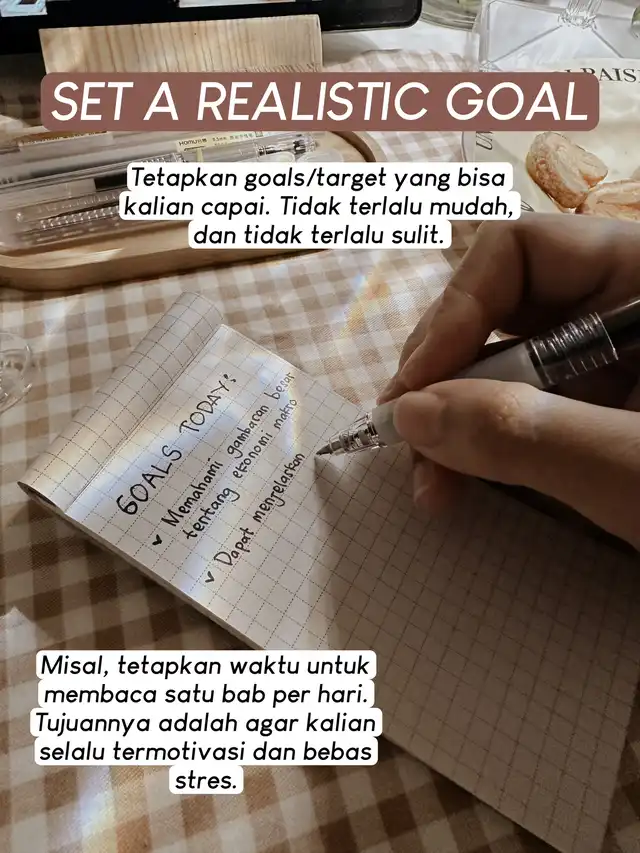 SET A REALISTIC GOAL
Tetapkan goals/target yang bisa
kalian capai. Tidak terlalu mudah,
dan tidak terlalu sulit.
GOALS TODAY:
Memahami gambaran besar
tentang ekonomi makro
Dapat menjelaskan
Misal, tetapkan waktu untuk
membaca satu bab per hari.
Tujuannya adalah agar kalian
selalu termotivasi dan bebas
stres.